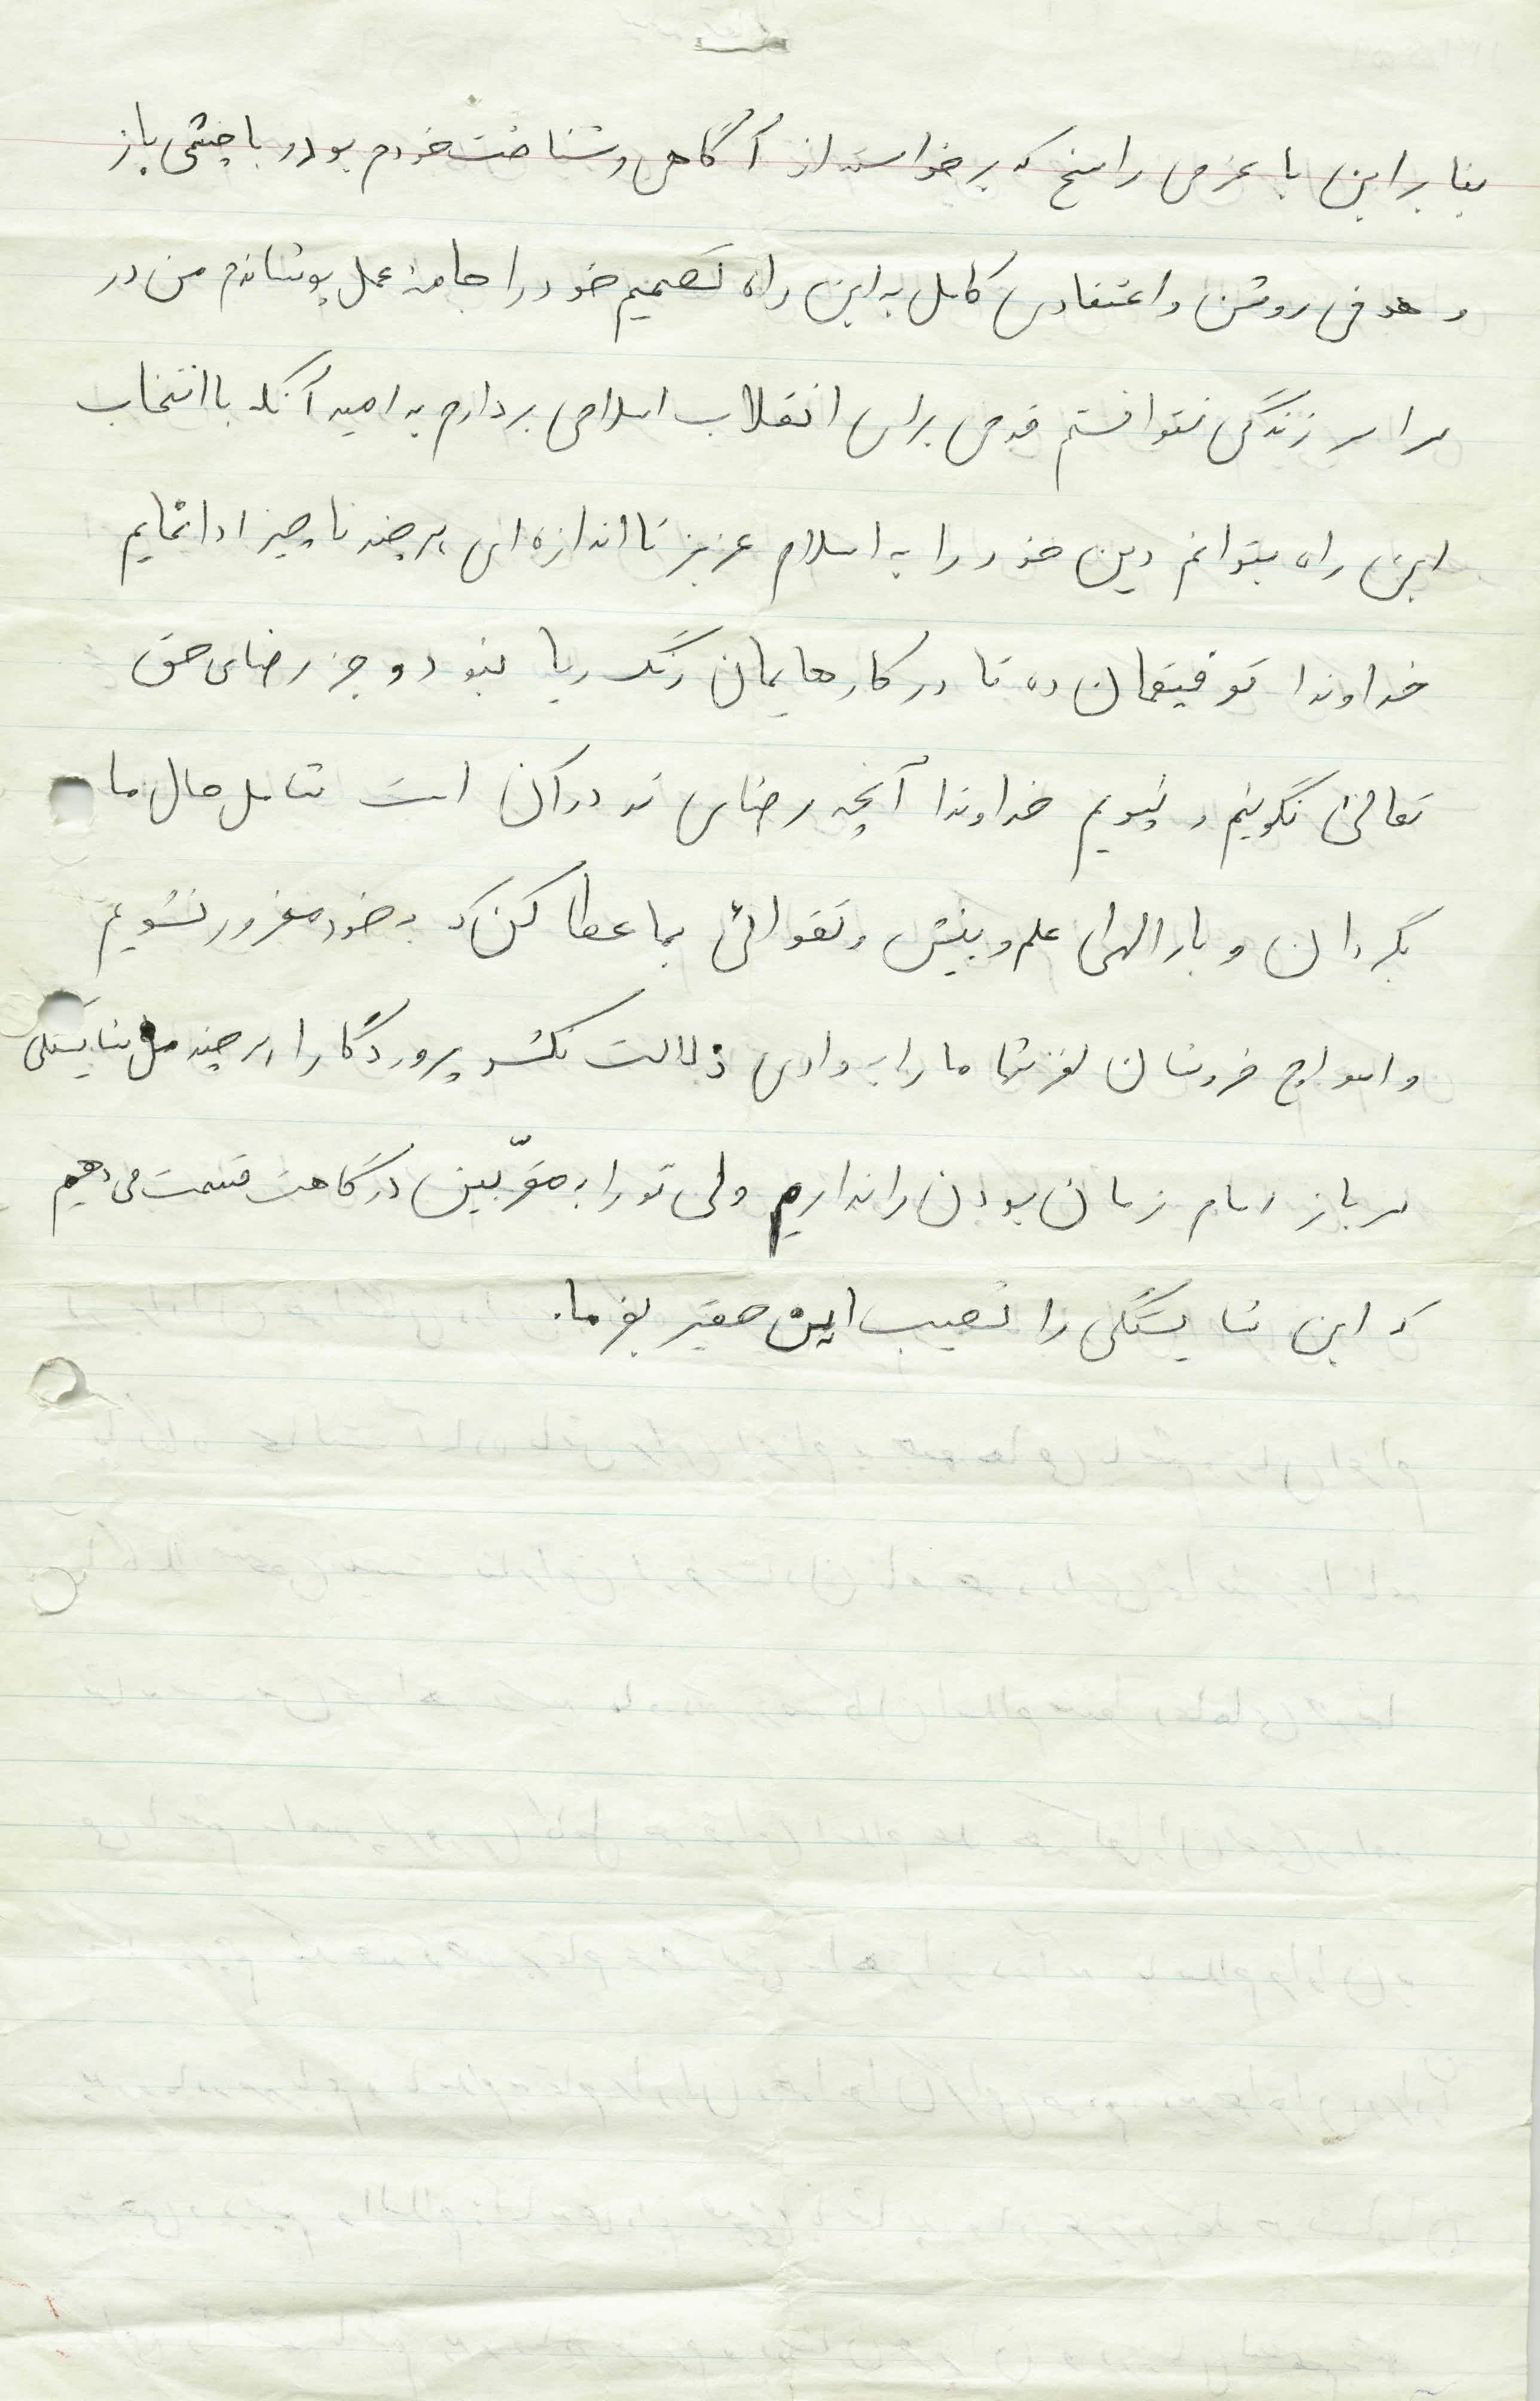 بنابراین با عزمی راسخ که برخواسته از آگاهی و شناخت خودم بود و با چشمی باز
و هدفی روشن و اعتقادی کامل به این راه تصمیم خود را جامهٔ عمل پوشاندم من در
سراسر زندگی نتوانستم قدمی برای انقلاب اسلامی بردارم به امید آنکه با انتخاب
این راه بتوانم دین خود را به اسلام عزیز تا اندازه‌ای هر چند ناچیز ادا نمایم
خداوندا توفیقمان ده تا در کارهایمان رنگ ریا نبود و جز رضای حق
تعالی نگوییم و نپوییم خداوندا آنچه رضای تو در آن است شامل حال ما
بگردان و بارالهی علم و بینش و تقوائی بما عطا کن که به خود مغرور نشویم
و امواج خروشان لغزشها ما را به وادی ذلالت نکشد پروردگارا هر چند شایستگی
سرباز امام زمان بودن را نداریم ولی تو را به مقرّبین درگاهت قسمت می دهیم
که این شایستگی را نصیب این حقیر بفرما.